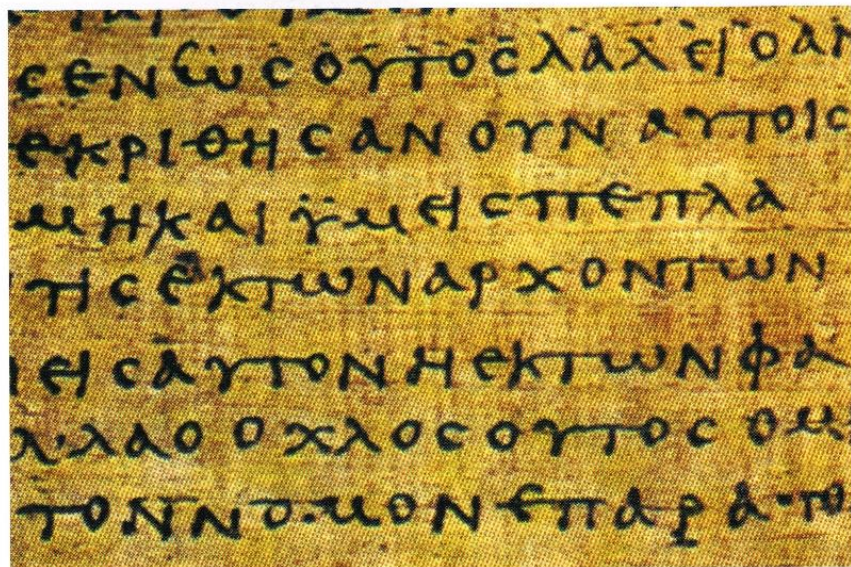 ϲενωϲουτοϲλαλειοαν
εκριθηϲανουναυτοιϲ
μηκαιϋμειϲπεπλα
τιϲεκτωναρχοντων
ειϲαυτονηεκτωνφα
αλλαοοχλοϲουτοϲομ
τοννομονεπαρατο